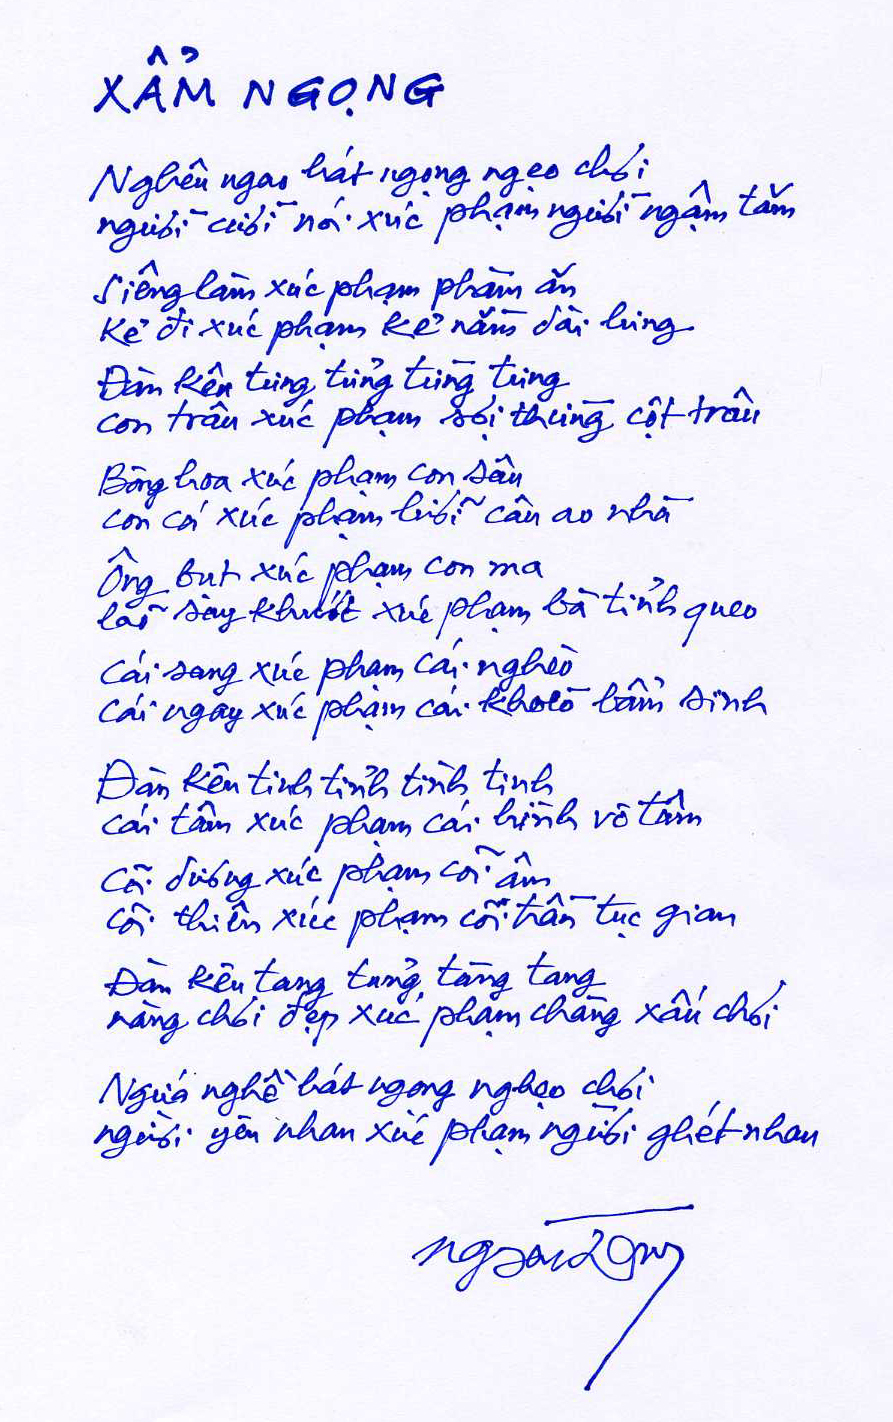 XẨM NGỌNG
Nghêu ngao hát ngọng nghẹo chơi
người cười nói xúc phạm người ngậm tăm
Siêng làm xúc phạm phàm ăn
Kẻ đi xúc phạm kẻ nằm dài lưng
Đàn kêu tưng tửng từng tưng
con trâu xúc phạm sợi thừng cột trâu
Bông hoa xúc phạm con sâu
con cá xúc phạm lưỡi câu ao nhà
Ông bụt xúc phạm con ma
lão say khướt xúc phạm bà tỉnh queo
Cái sang xúc phạm cái nghèo
cái ngay xúc phạm cái khoèo bẩm sinh
Đàn kêu tinh tỉnh tình tinh
cái tâm xúc phạm cái hình vô tâm
Cõi dương xúc phạm cõi âm
cõi thiền xúc phạm cõi trần tục gian
Đàn kêu tang tưng tàng tang
nàng chơi đẹp xúc phạm chàng xấu chơi
Ngứa nghề hát ngọng nghẹo chơi
người yêu nhau xúc phạm người ghét nhau